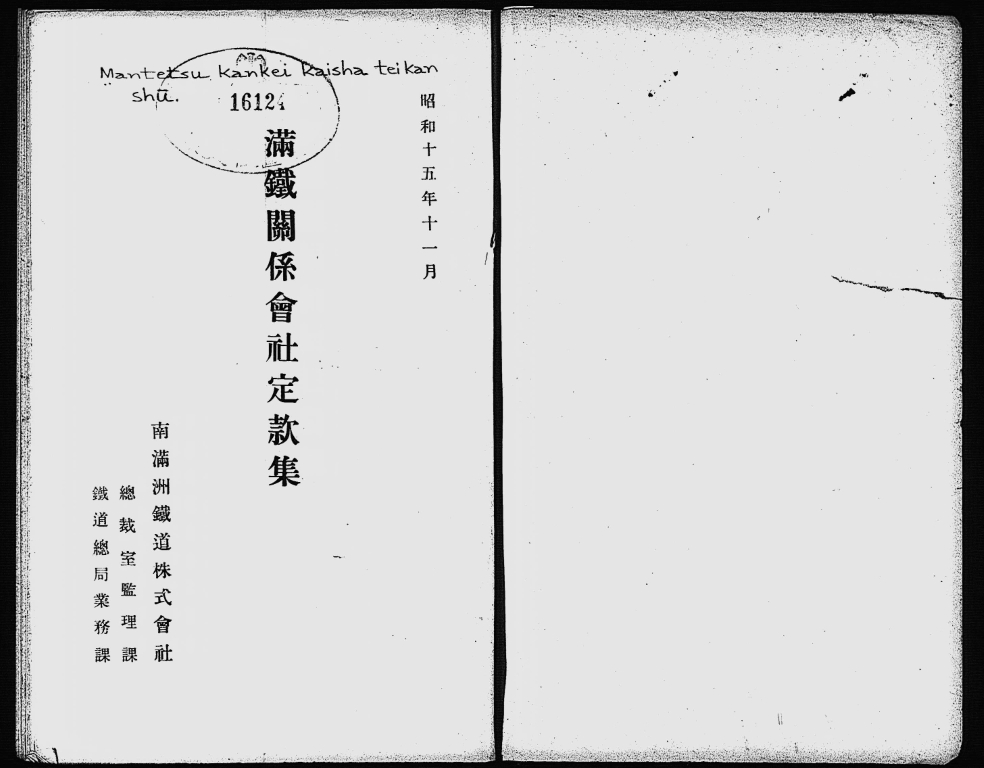 Mantetsu kankei kaisha teikan
shū.
16124
昭和十五年十一月
滿鐵關係會社定款集
南滿洲鐵道株式會社
總裁室監理課
鐵道總局業務課